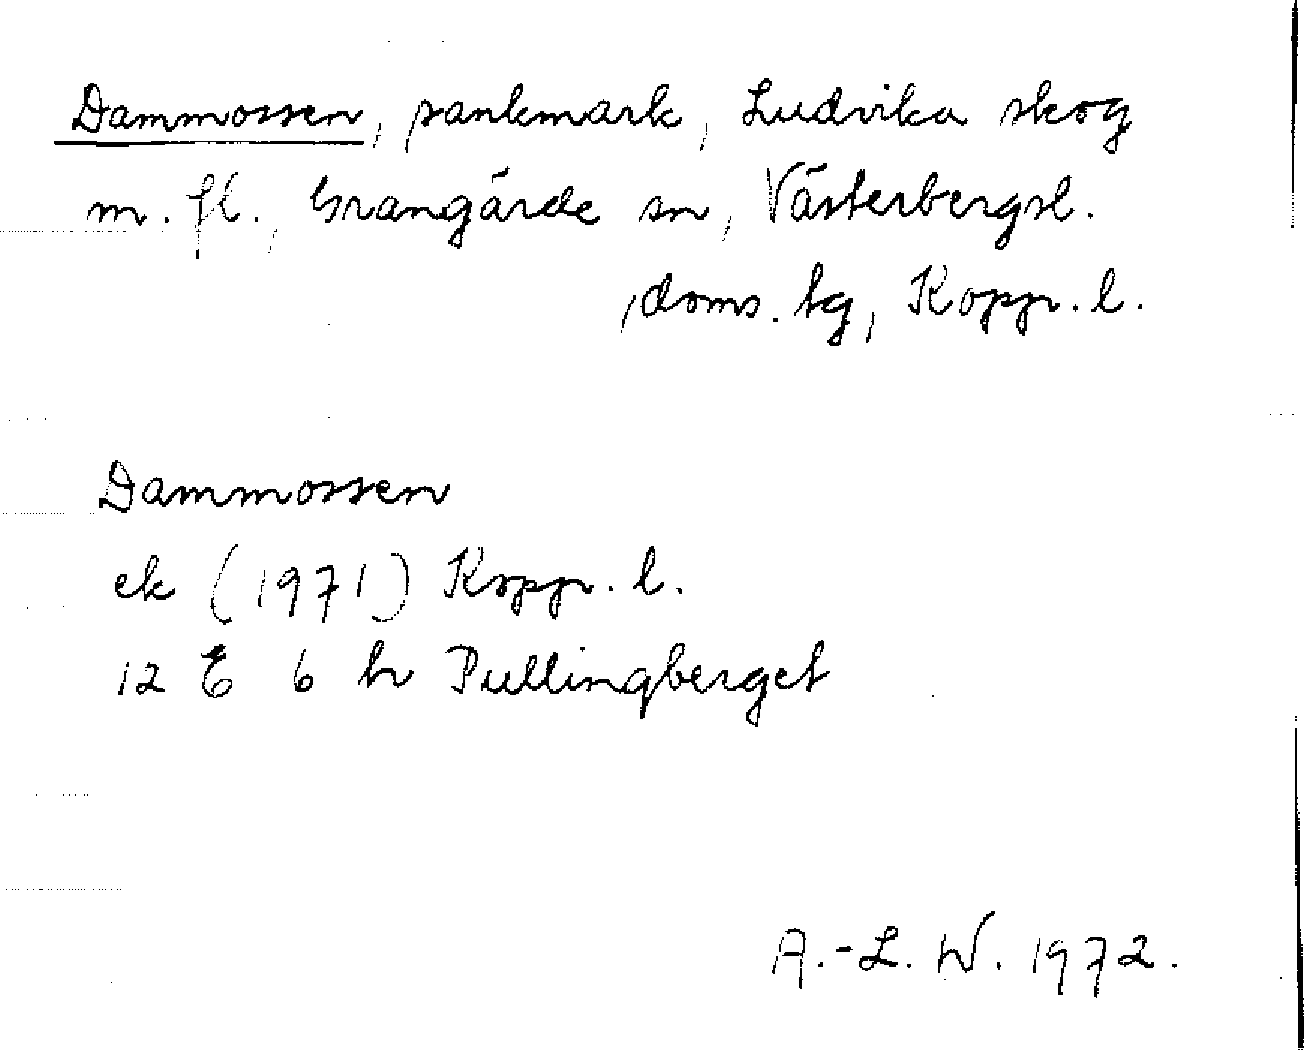 Dammossen, sankmark, Ludvika skog
m. fl., Grangärde sn, Västerbergsl.
doms. tg, Kopp. l.
Dammossen
ek (1971) Kopp. l.
12 E 6 h Pullingberget
A.-L. W. 1972.